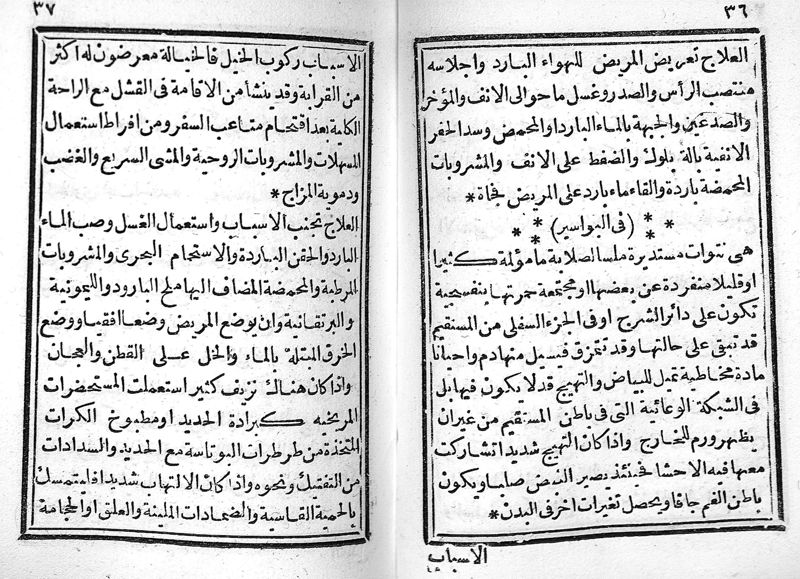 ٣٦
العلاج تعريض المريض للهواء البارد واجلاسه
منتصب الرأس والصدر وغسل ما حوالى الانف والمؤخر
والصدغين والجبهة بالماء البارد او المحمض وسد الحفر
الانفية بالة بلوك والضغط على الانف والمشروبات
المحمضة باردة والقاء ماء بارد على المريض فجأة *
* * * (فى البواسير) * * *
هى نتوات مستديرة ملسا الصلابة ما مؤلمة كثيرا
او قليلا منفردة عن بعضها او مجتمعة حمرتها بنفسجية
تكون على دائر الشرج او فى الجزء السفلى من المستقيم
قد تبقى على حالتها وقد تتمزق فيسيل منها دم واحيانا
مادة مخاطية تميل للبياض والتهيج قد لا يكون فيها بل
فى الشبكة الوعائية التى فى باطن المستقيم من غيران
يظهر ورم للخارج واذا كان التهيج شديدا تشاركت
معها فيه الاحشا فحينئذ يصير النبض صلبا ويكون
باطن الفم جافا ويحصل تغيرات اخر فى البدن *
الاسباب
٣٧
الاسباب ركوب الخيل فالخيالة معرضون له اكثر
من القرابة وقد ينشأ من الاقامة فى القشل مع الراحة
الكلية بعد اقتحام متاعب السفر ومن افراط استعمال
المسهلات والمشروبات الروحية والمشى السريع والغضب
ودموية المزاج *
العلاج تجنب الاسباب واستعمال الغسل وصب الماء
البارد والحقن الباردة والاستحمام البحرى والمشروبات
المرطبة والمحمضة المضاف اليها ملح البارود والليمونية
والبرتقانية وان يوضع المريض وضعا افقيا ووضع
الخرق المبتلة بالماء والخل على القطن والعجان
واذا كان هناك نزيف كثير استعملت المستحضرات
المريخيه كبرادة الحديد او مطبوخ الكرات
المتخذة من طرطرات البوتاسة مع الحديد والسدادات
من التفتيك ونحوه واذا كان الالتهاب شديدا فليتمسك
بالحمية القاسية والضمادات الملينة والعلق او الحجامة